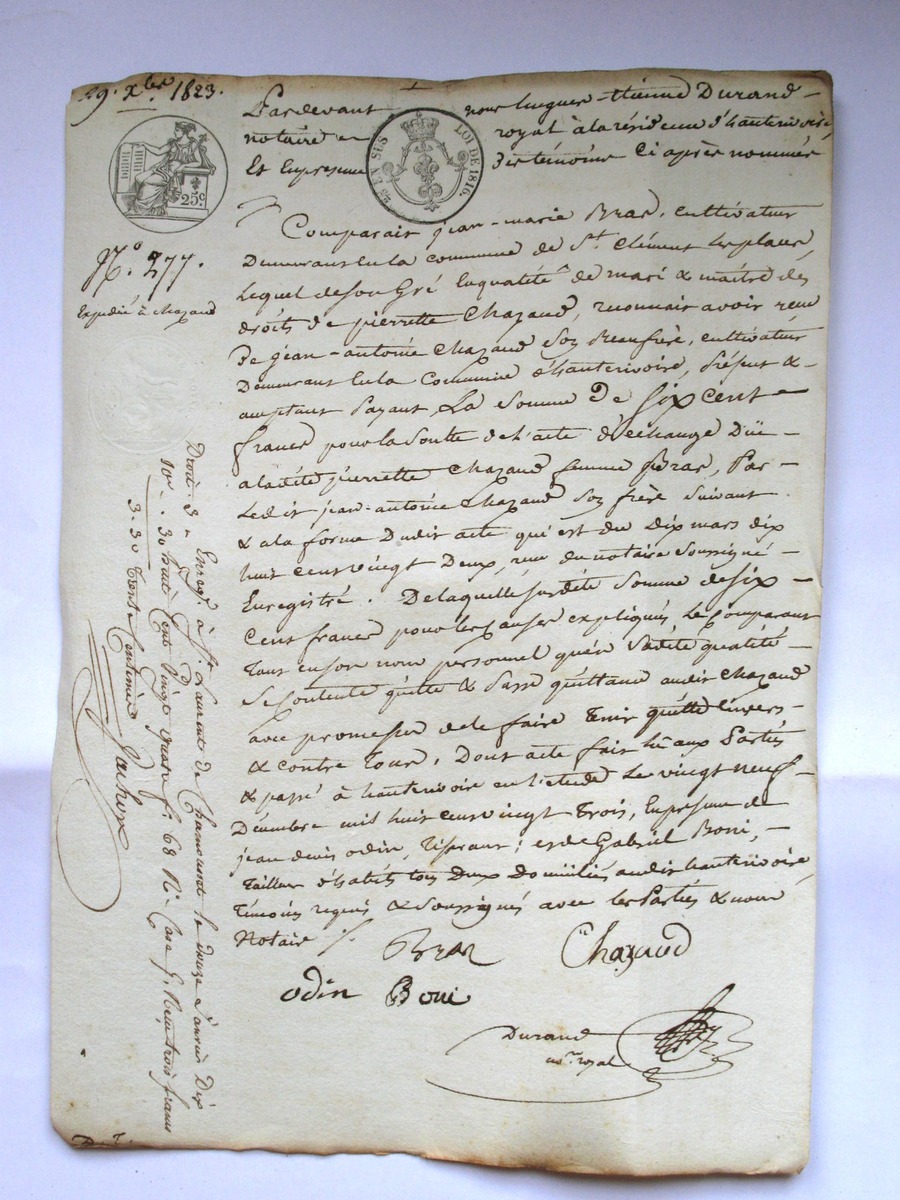 29. Xbre 1823.
Pardevant nous hugues-étienne Durand-
notaire royal à la résidence d'hauterivoire,
Et En présence des témoins Ci après nommés
25c.
EN SUS LOI DE 1816.
N° 277.
Expédié à Chazaud
Comparait jean-marie Bras, cultivateur
Demeurant En la commune de St. Clément les places,
Lequel de son Gré En qualité de mari & maître des
droits de pierrette Chazaud, reconnait avoir reçu
De jean-antoine Chazaud son Beaufrère, cultivateur
Demeurant En la Commune d'hauterivoire, présent &
acceptant payant La Somme De Six cent
francs pour la Soulte de l'acte d'échange Dûe
a ladite pierrette Chazaud femme Bras, Par
Ledit jean-antoine Chazaud son frère Suivant
& a la forme Dudit acte qui est du Dix mars dix
huit cent vingt Deux, reçu du notaire Soussigné
Enregistré. De laquelle susdite Somme de Six
Cent francs pour les Causes expliqués, Le Comparant
Tant en son nom personnel qu'en Sadite qualité
Se Contente quitte & passe quittance audit Chazaud
avec promesse de le faire Tenir quitte Envers
& contre Tous, Dont acte fait lû aux Parties
& passé à hauterivoire en l'étude Le vingt neuf
Décembre mil huit cent vingt Trois, En présence de
jean denis odin, Tisserant; et de Gabriel Boni,
Tailleur d'habits tous Deux domiciliés audit hauterivoire
Témoins requis & Soussignés avec les Parties & nous
Notaire
Bras Chazaud
odin Boni
Durand
no.re royal
Droit 3 " Enreg. à St. Laurent de Chamousset le douze Janvier Dix
10e .. 30 huit Cent Vingt quatre fo. 68 Ro. Case 7. Reçu trois francs
3-30 Trente Centimes